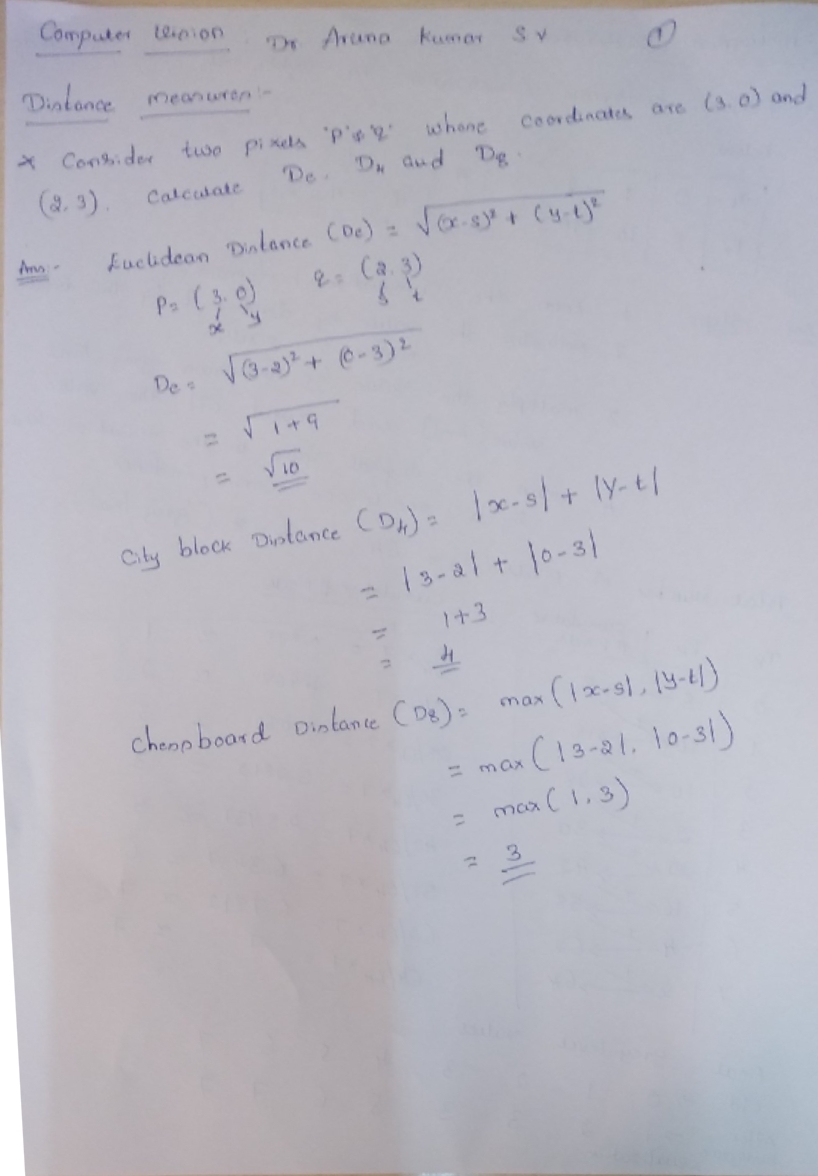 Computer Vision Dr Aruna Kumar S V 1
Distance measures:-
* Consider two pixels 'p' & 'q' whose coordinates are (3,0) and
(2,3). Calculate De, D4 and D8.
Ans:- Euclidean Distance (De) = √(x-s)² + (y-t)²
P = (3,0) q = (2,3)
x y s t
De = √(3-2)² + (0-3)²
= √1+9
= √10
City block Distance (D4) = |x-s| + |y-t|
= |3-2| + |0-3|
= 1+3
= 4
Chessboard Distance (D8) = max(|x-s|, |y-t|)
= max(|3-2|, |0-3|)
= max(1,3)
= 3